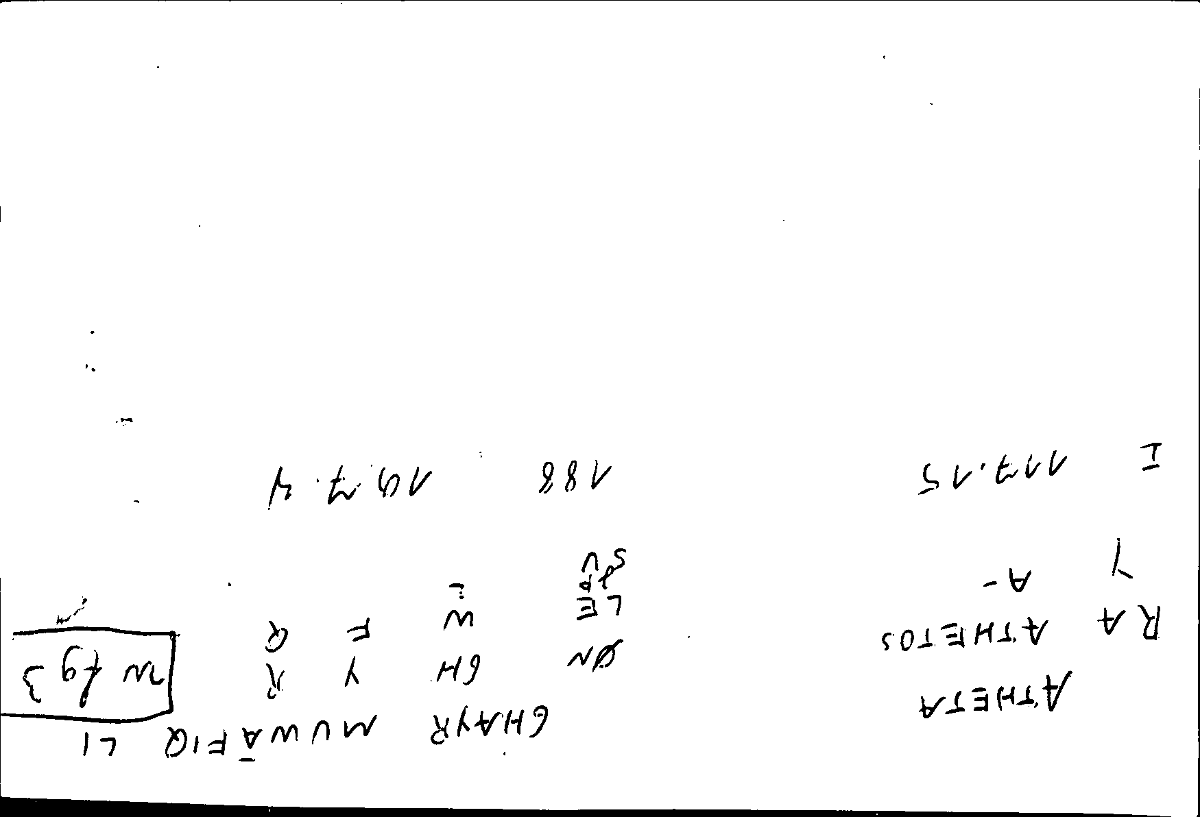 GHAYR MUWĀFIQ LI
ATHETA
ØN GH Y R
RA ATHETOS LE W F Q
Y A-
I 117.15 188 19.7.4